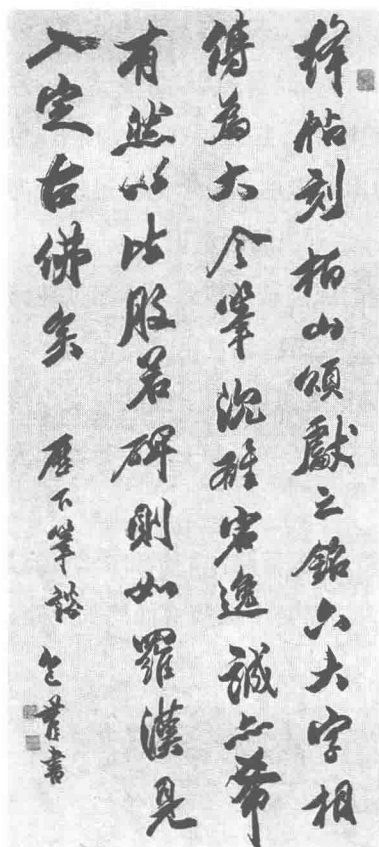 絳帖刻栢山頌獻之銘六大字相
傳為大令筆沈雄宕逸誠亦希
有然以比般若碑則如羅漢見
入定古佛矣 歷下筆談 包世臣書